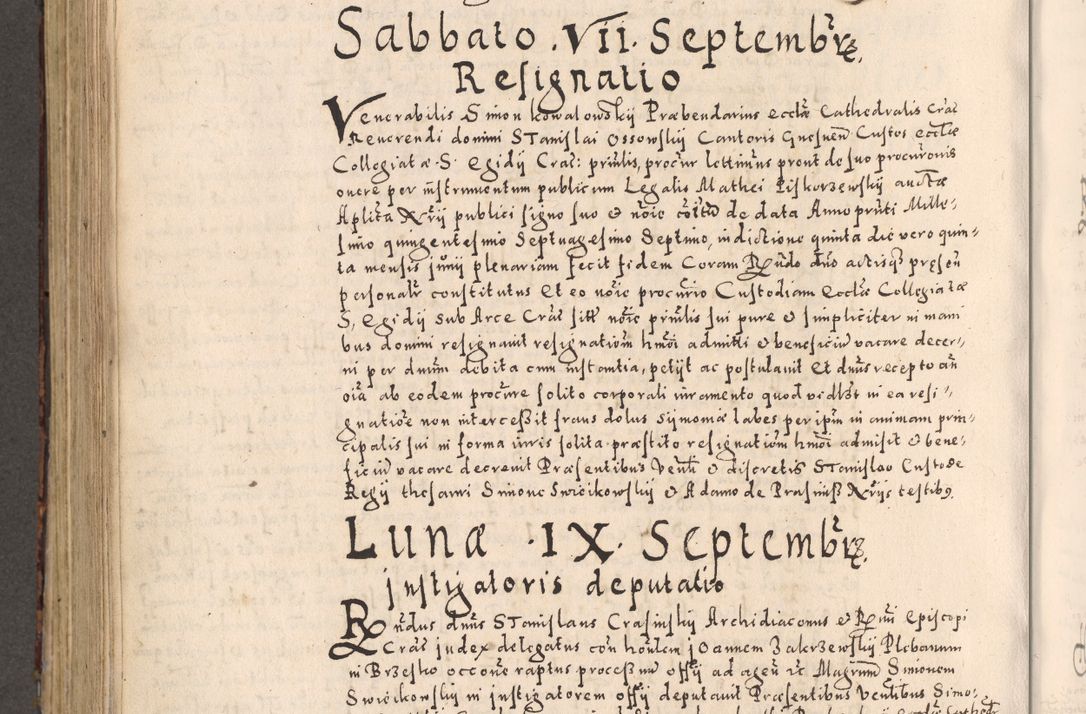 Sabbato . VII . Septembrꝭ.
Resignatio
Venerabilis Simon kowalowskij Præbendarius ecclæ Cathedralis Cräc
Reuerendi domini STanislai Ossowskij Cantoris Gnesneñ Custos ecclæ
Collegiatæ S. Egidij Crac: prinĺis, procur lettimus prout de suo procuronis
onere per instrumentum publicum Legalis Mathei Piskorzewskij auctæ
Aplica Nrij publici signo suo et noïe de data Anno prnti Mille-
simo quingentesimo Septuagesimo Septimo, indictione quinta die vero quin-
ta mensis junij plenariam fecit fidem Coram Rndo dno actisqȝ præsen
personalr constitutus Et eo noïe procurio Custodiam Ecclæ Collegiatæ
S, Egidij sub Arce Crac sitt noïe prinlis sui pure et simpliciter in mani
bus domini resignauit resignationem hmoi admitti et beneficiu vacare decer-
ni per dnum debita cum instantia, petijt ac postulauit Et dnus recepto an
oia ab eodem procure solito corporali iuramento quod videlt in ea resi-
gnatione non intercessit fraus dolus symoniæ labes per ipm in animam prin-
cipalis sui in forma iuris solita præstito resignationem hmoi admisit et bene-
ficiu vacare decreuit Præsentibus Venli et discretis STanislao Custode
Regij thesauri Simone Swicikowskij et Adamo de Prasniss Nrijs testibȝ
Lunæ . IX . Septembrꝭ.
jnstigatoris deputatio
Rndus dnus STanislaus Crasinskij Archidiaconus et Rmi Episcopi
Crac judex delegatus con honlem joannem Zakrzewskij Plebanum
in Brzesko occone raptus processum offij ad agen ꝛc Magrum Simonem
Swicikowskij in jnstigatorem offij deputauit Præsentibus Venlibus Simo-